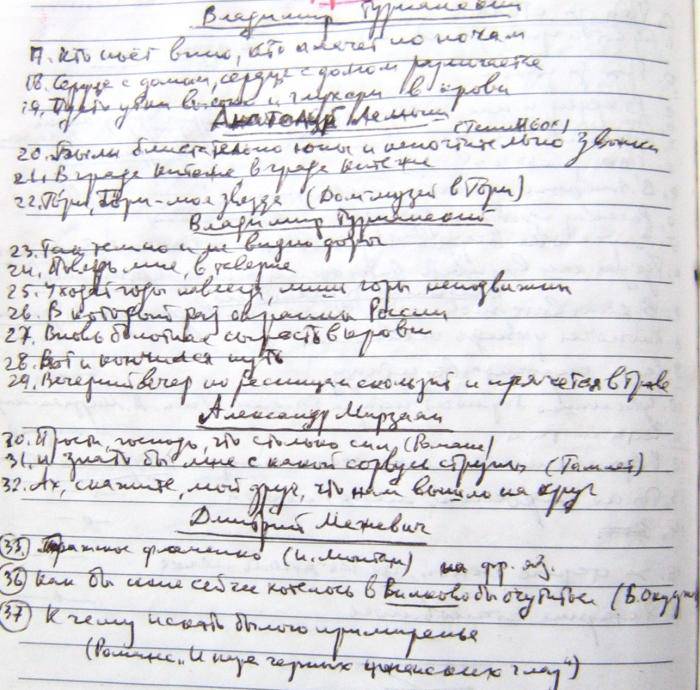 Владимир Туриянский
17. Кто пьёт вино, кто плачет по ночам
18. Сердце с домом, сердце с домом разлучается
19. Пусть утки высоко и глухари в крови
Анатолий
20. Были блистательно юны и непочтительно звонки
21. В граде Китеже в граде Китеже
22. Гори, Гори - моя звезда (Дом-музей в Гори)
Владимир Туриянский
23. Так темно и не видно дороги
24. мне, о
25. Уходят годы навсегда, лишь горы неподвижны
26. В который раз окраины России
27. Вновь болотная сырость в крови
28. Вот и кончился путь
29. Вечерний вечер по ресницам скользит и прячется в траве
Александр Мирзаян
30. Прости, господь, что столько сил (Романс)
31. И знать бы мне с какой сорвусь струны (Гамлет)
32. Ах, скажите, мой друг, что нам вышло на круг
Дмитрий Межевич
33. (И. Монтан) на фр. яз.
36 Как бы мне сейчас хотелось в Вилково вы очутиться (Б. Окуджа
37 К чему искать былого примиренье
(Романс "И пара чёрных цыганских глаз")